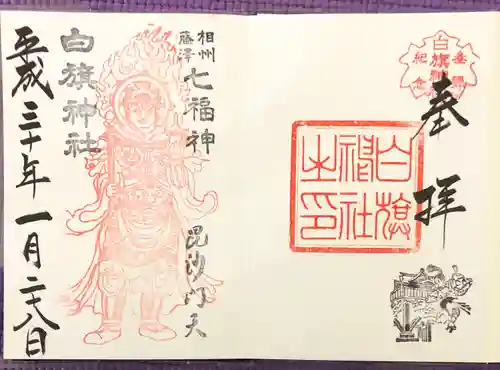 奉拝
白旗神社
参拝
紀念
白旗神社之印
相州
藤澤
七福神
毘沙門天
白旗神社
平成三十年一月二十八日